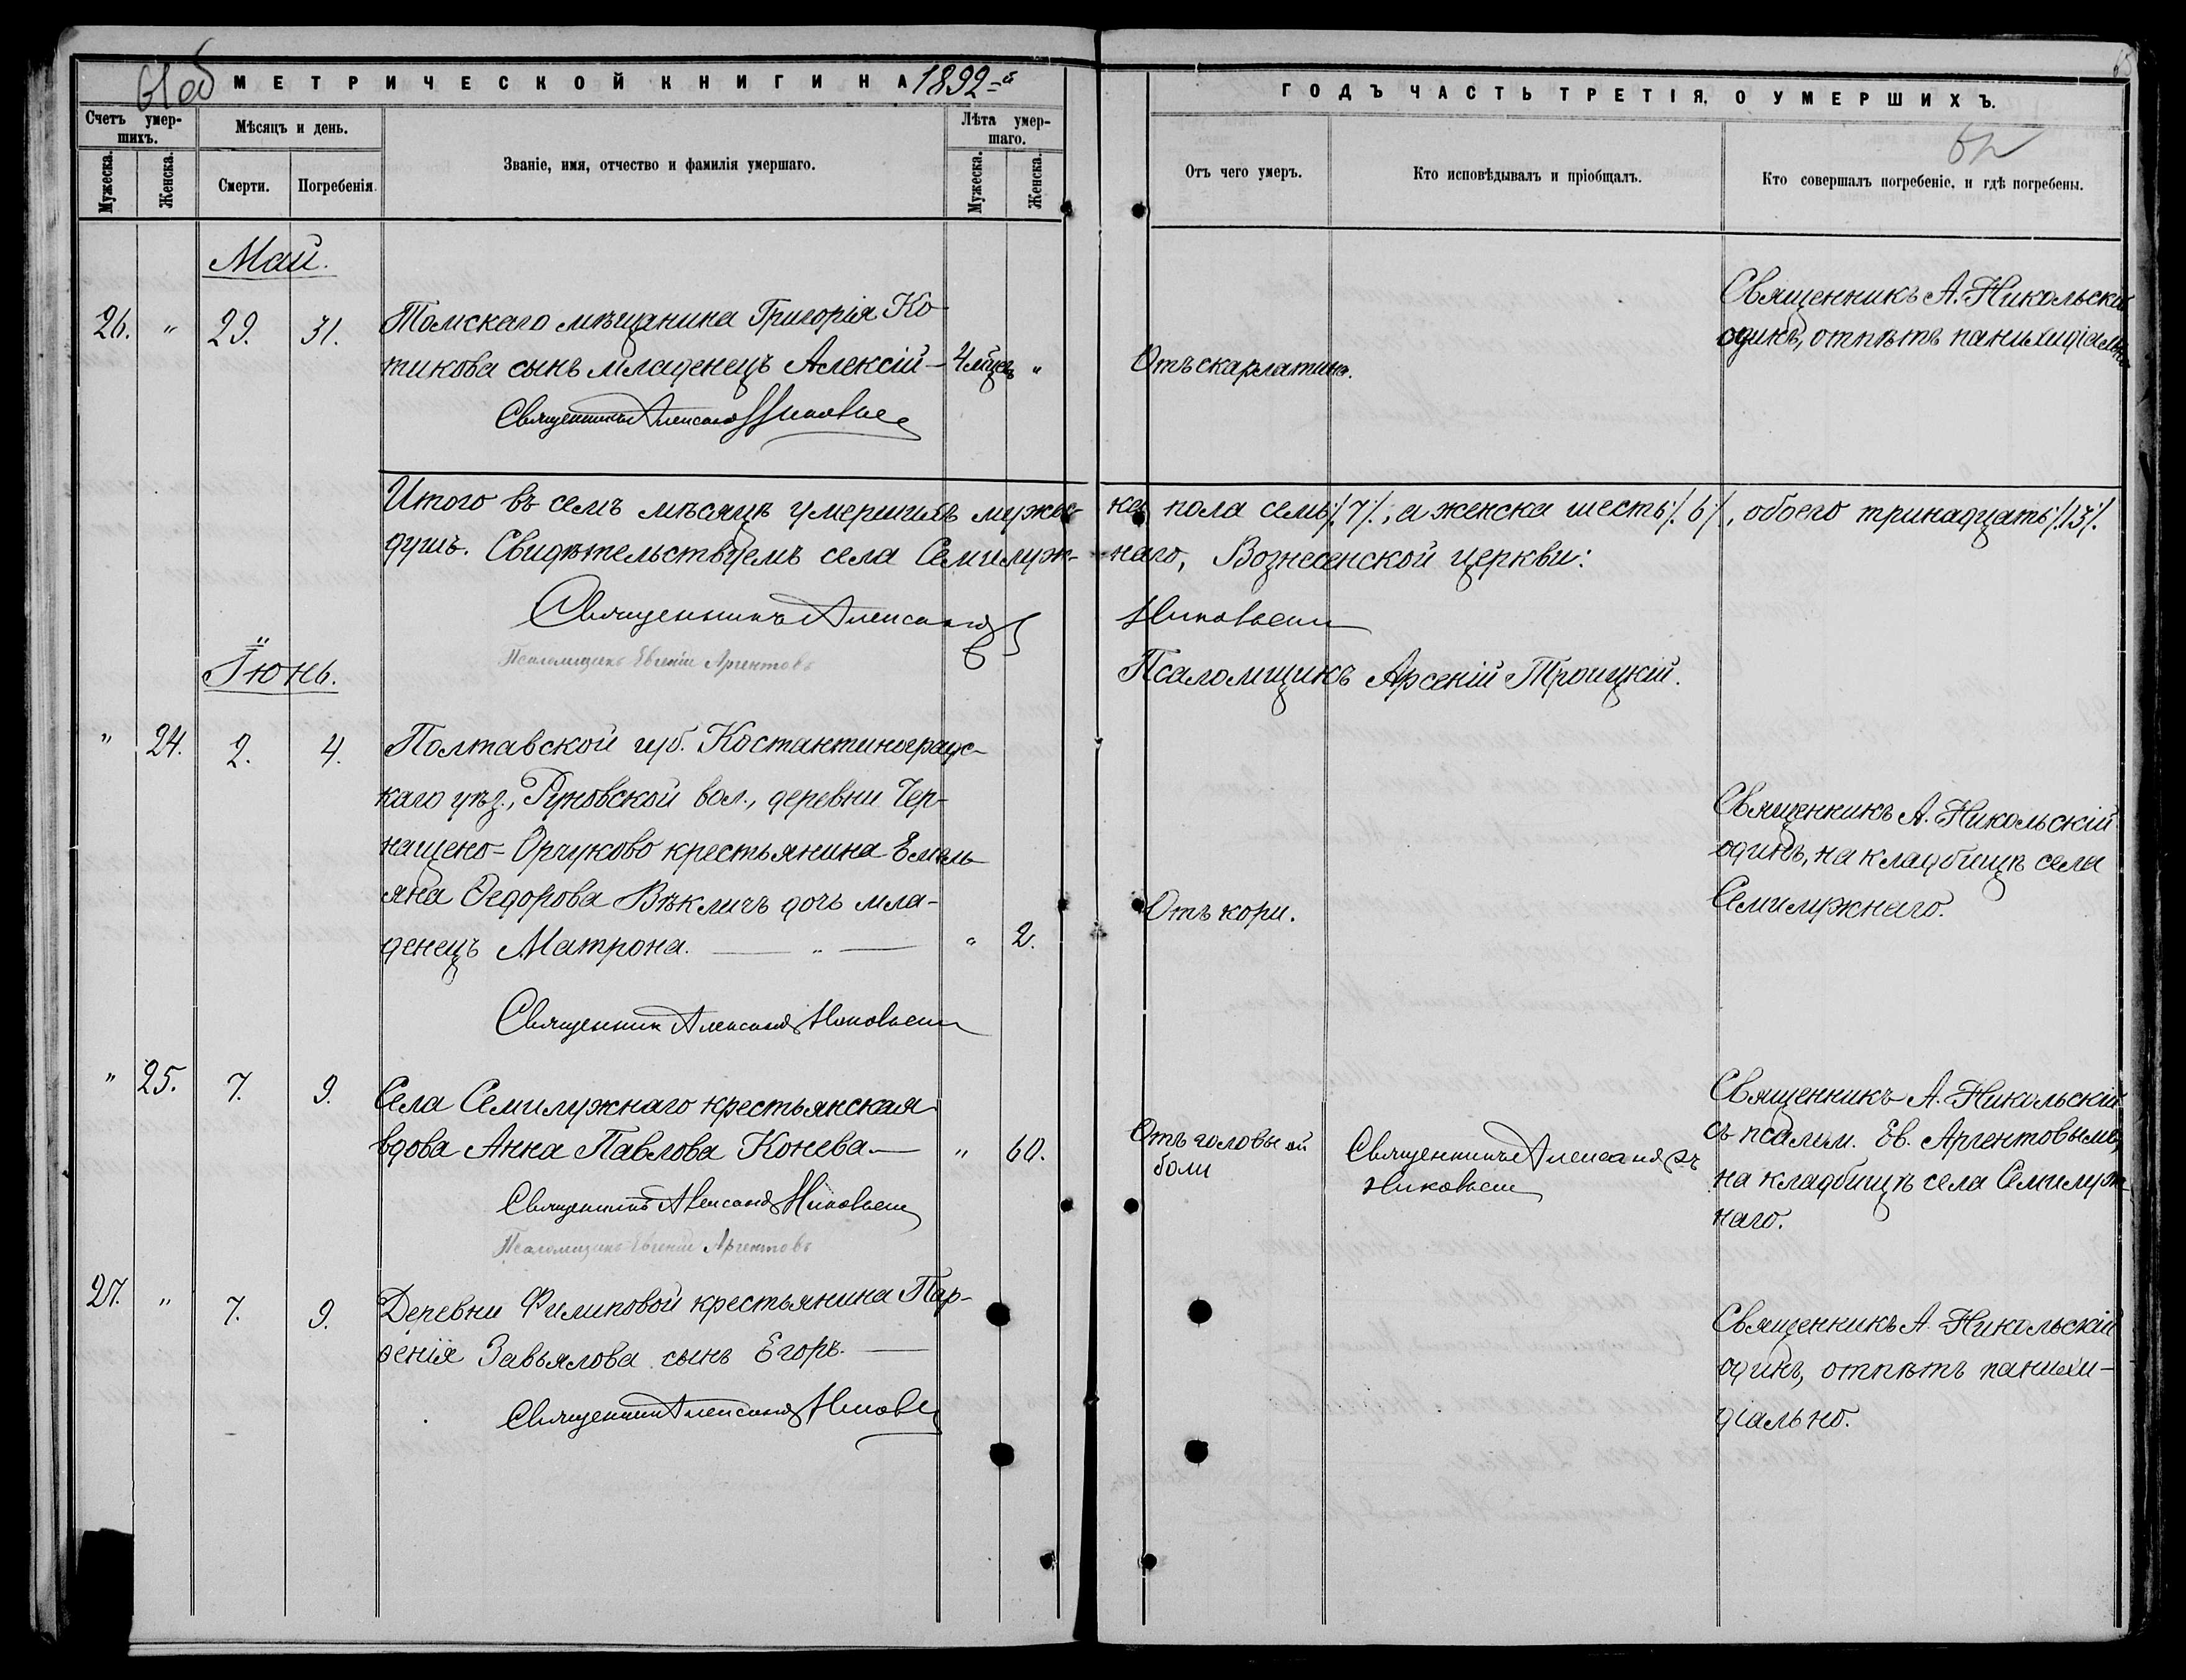 МЕТРИЧЕСКОЙ КНИГИ НА 1892-й
ГОДЪ ЧАСТЬ ТРЕТІЯ, О УМЕРШИХЪ.
Счетъ умер-
шихъ.
Мужеска.
Женска.
Мѣсяцъ и день.
Смерти.
Погребенія.
Званіе, имя, отчество и фамилія умершаго.
Лѣта умер-
шаго.
Мужеска.
Женска.
Отъ чего умеръ.
Кто исповѣдывалъ и пріобщалъ.
Кто совершалъ погребеніе, и гдѣ погребены.
Май.
26. " 29. 31.
Томскаго мѣщанина Григорія Ко-
тикова сынъ младенецъ Алексій — 4 мѣцев "
Священникъ Александръ Никольскій
Отъ скарлатины.
Священникъ А. Никольскій
одинъ, отпѣтъ панихидіально
Итого въ семъ мѣсяцѣ умершихъ мужес-
ка пола семь ./.7./., а женска шесть ./.6./., обоего тринадцать ./.13./.
душъ. Свидѣтельствуемъ села Семилуж-
наго, Вознесенской церкви:
Священникъ Александръ
Никольскій
Псаломщикъ Евгеній Аргентовъ
Псаломщикъ Арсеній Троицкій.
Іюнь.
" 24. 2. 4.
Полтавской губ. Костантиноградс-
каго уѣз., Руновской вол., деревни Чер-
нащено-Орчуково крестьянина Емель-
яна Ѳедорова Вѣкличъ дочь мла-
денецъ Матрона. — " — " 2.
Священник Александръ Никольскій
Отъ кори.
Священникъ А. Никольскій
одинъ, на кладбищѣ села
Семилужнаго.
" 25. 7. 9.
Села Семилужнаго крестьянская
вдова Анна Павлова Конева. — " 60.
Священникъ Александръ Никольскій
Псаломщикъ Евгеній Аргентовъ
Отъ головы ой
боли
Священникъ Александръ
Никольскій
Священникъ А. Никольскій
съ псалом. Ев. Аргентовымъ,
на кладбищѣ села Семилуж-
наго.
27. " 7. 9.
Деревни Филиповой крестьянина Пар-
ѳенія Завьялова сынъ Егоръ. —
Священникъ Александръ Никольскій
Священникъ А. Никольскій
одинъ, отпѣтъ панихи-
діально.